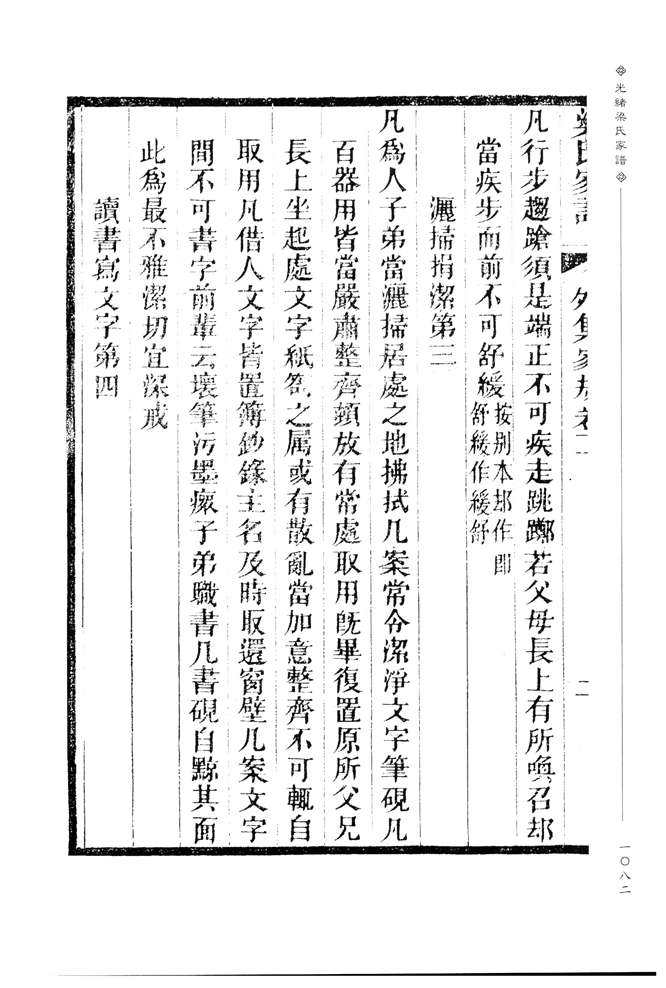 光緒梁氏家譜
一〇八二
梁氏家譜 外集家規卷二 二
凡行步趨蹌須是端正不可疾走跳躑若父母長上有所喚召却
當疾步而前不可舒緩按别本却作即舒緩作緩舒
灑掃捐潔第三
凡為人子弟當灑掃居處之地拂拭几案常令潔淨文字筆硯凡
百器用皆當嚴肅整齊頓放有常處取用旣畢復置原所父兄
長上坐起處文字紙劄之属或有散亂當加意整齊不可輒自
取用凡借人文字皆置簿鈔錄主名及時取還窗壁几案文字
間不可書字前輩云壞筆污墨瘝子弟職書几書硯自黥其面
此為最不雅潔切宜深戒
讀書寫文字第四